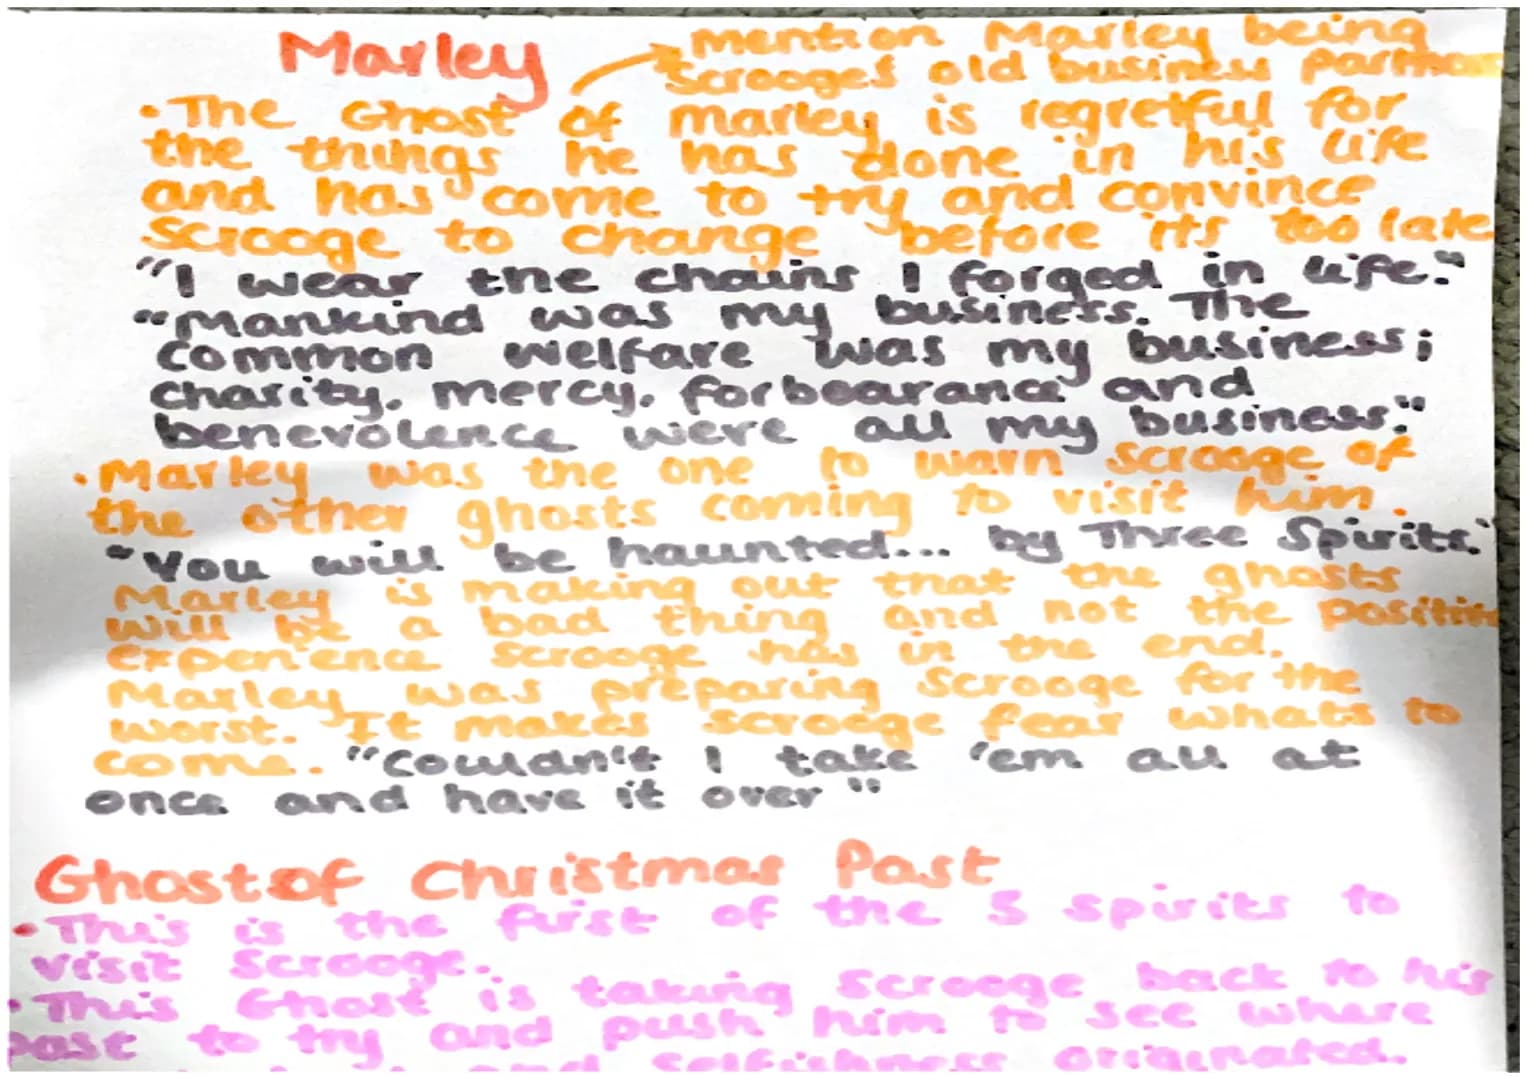 Marley
mention Marley being
scrooges old business
• The Ghost of marley is regretful for
the things he has done in his life
and has come to try and convince
Scrooge to change before its too late
"I wear the chains I forged in life."
"Mankind was my business. The
common welfare was my business;
charity, mercy, forbearance and
benevolence were all my business."
• Marley was the one to warn scrooge of
the other ghosts coming to visit him.
"You will be haunted... by Three Spirits."
Marley is making out that the ghosts
will be a bad thing and not the
experience scrooge has in the end.
Marley was preparing Scrooge for the
worst. It makes scrooge fear whats to
come. "Couldn't I take 'em all at
once and have it over"
Ghost of Christmas Past
• This is the first of the 3 spirits to
visit Scrooge.
• This Ghost is taking Scrooge back to his
past to try and push him to see where
and selfishness originated.